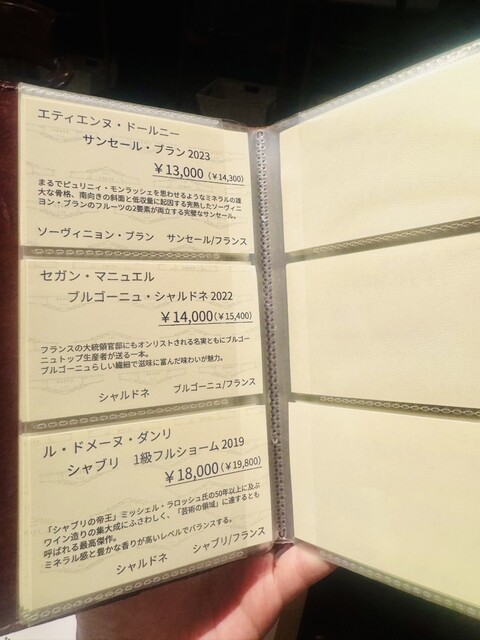 エティエンヌ・ドールニー
サンセール・ブラン 2023
￥13,000（￥14,300）
まるでピュリィニィ・モンラッシェを思わせるようなミネラルの雄
大な骨格、南向きの斜面と低収量に起因する完熟したソーヴィニ
ヨン・ブランのフルーツの2要素が両立する完璧なサンセール。
ソーヴィニョン・ブラン サンセール/フランス
セガン・マニュエル
ブルゴーニュ・シャルドネ 2022
￥14,000（￥15,400）
フランスの大統領官邸にもオンリストされる名実ともにブルゴー
ニュトップ生産者が送る一本。
ブルゴーニュらしい繊細で滋味に富んだ味わいが魅力。
シャルドネ ブルゴーニュ/フランス
ル・ドメーヌ・ダンリ
シャブリ 1級フルショーム 2019
￥18,000（￥19,800）
「シャブリの帝王」ミッシェル・ラロッシュ氏の50年以上に及ぶ
ワイン造りの集大成にふさわしく、「芸術の領域」に達するとも
呼ばれる最高傑作。
ミネラル感と豊かな香りが高いレベルでバランスする。
シャルドネ シャブリ/フランス